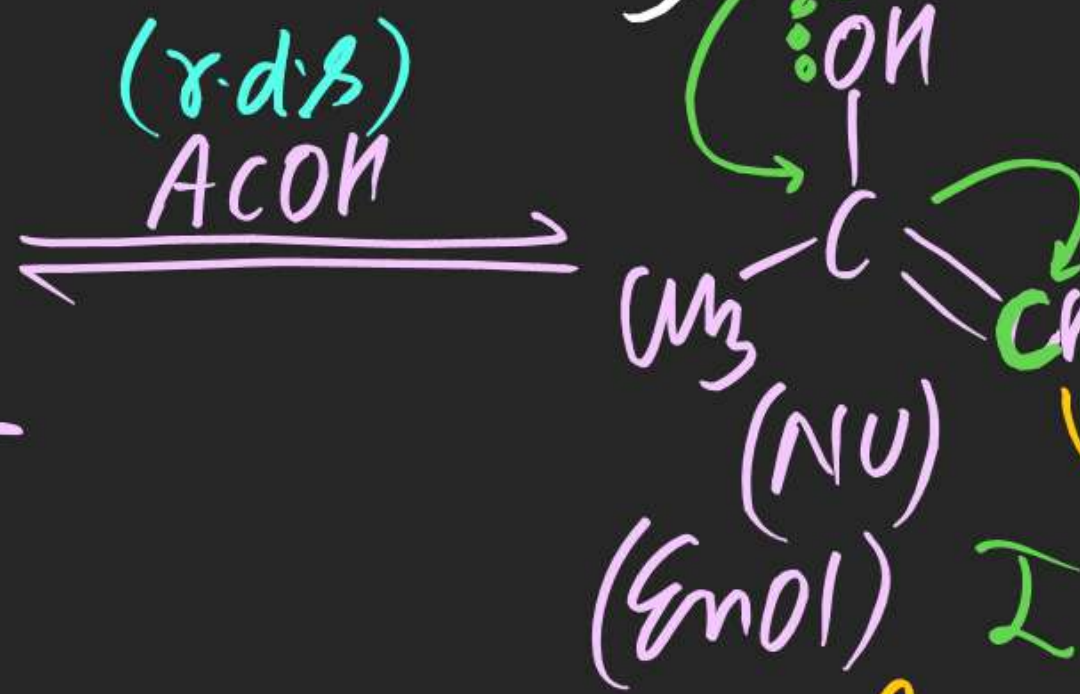 (r.d.s)
AcOH
OH
C
CH3
C
(NU)
(Enol)
I